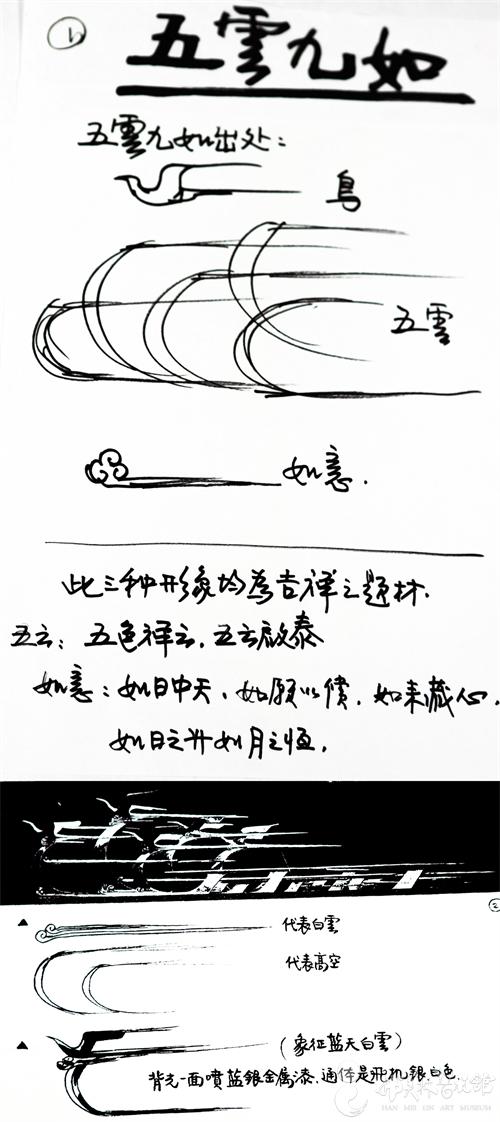 五雲九如
五雲九如出处：
鳥
五雲
如意.
此三种形象均為吉祥之題材.
五云：五色祥云，五云啟泰
如意：如日中天、如願以償，如来藏心，
如日之升如月之恒.
代表白雲
代表高空
(象征蓝天白雲)
背光一面喷蓝银金属漆，通体是飛机银白色.
韩美林艺术馆
HAN MEI LIN ART MUSEUM